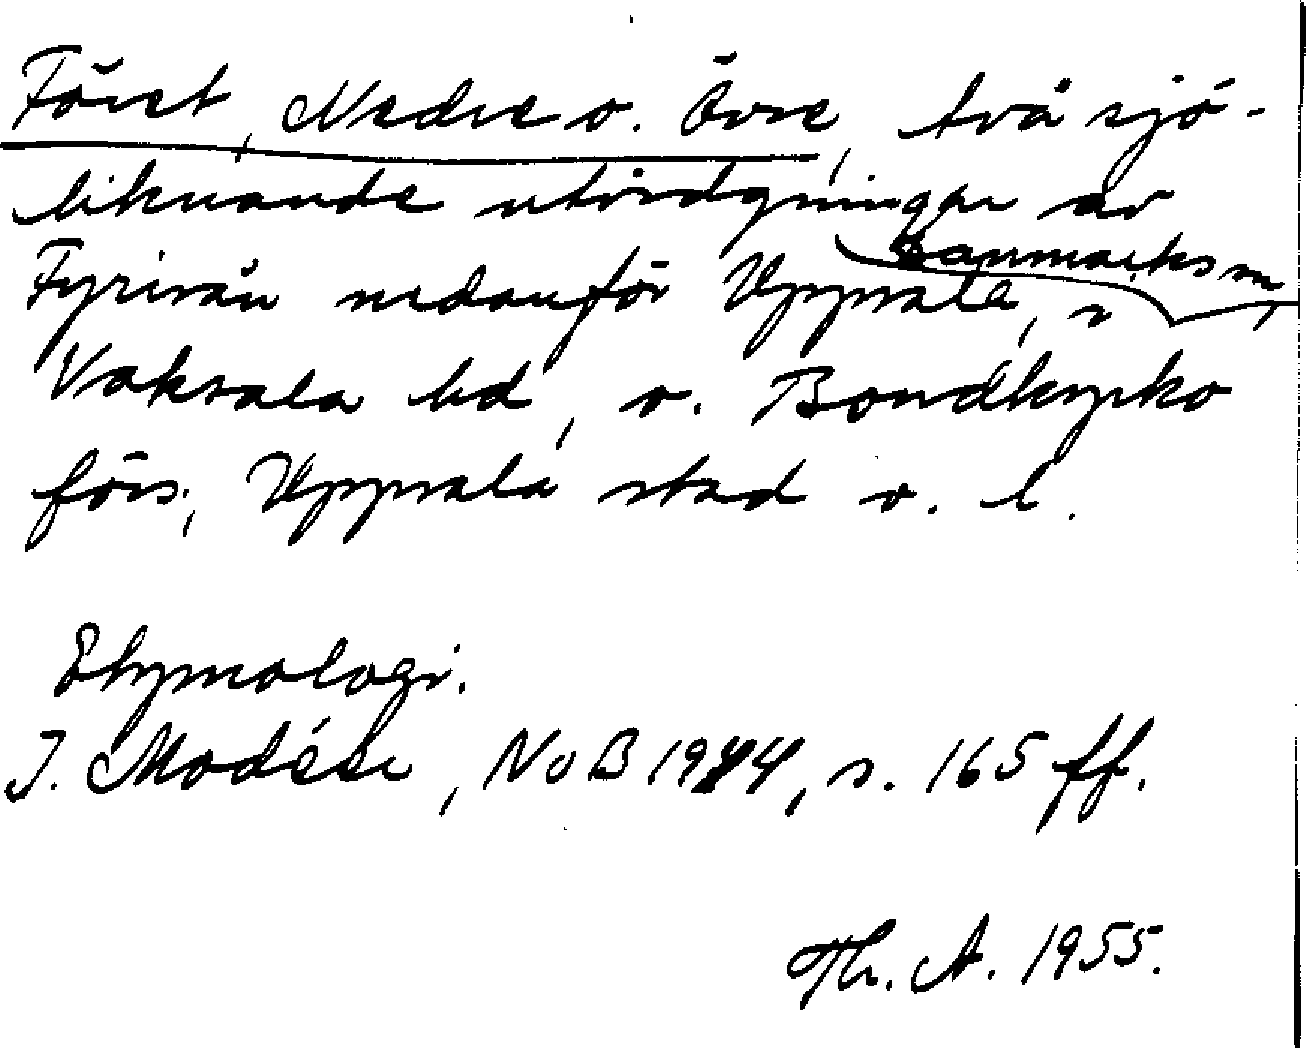 Föret, Nedre o. Övre, två sjö-
liknande utvidgningar av
Fyrisån nedanför Uppsala, i Danmarks sn,
Vaksala hd, o. Bondkyrko
förs., Uppsala stad o. l.
Etymologi.
I. Modéer, NoB 1944, s. 165 ff.
Th. A. 1955.